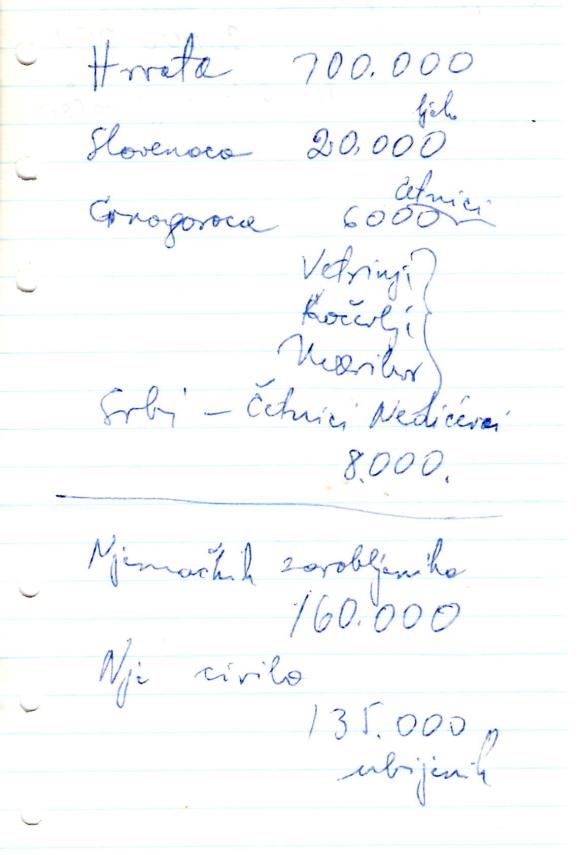 Hrvata 700.000
bjelo
Slovenaca 20.000
četnici
Crnogoraca 6000
Vetrinji
Kočevlji
Maribor
Srbi – Četnici Nedićevci
8.000.
Njemačkih zarobljenika
160.000
Nje civila
135.000
ubijenih